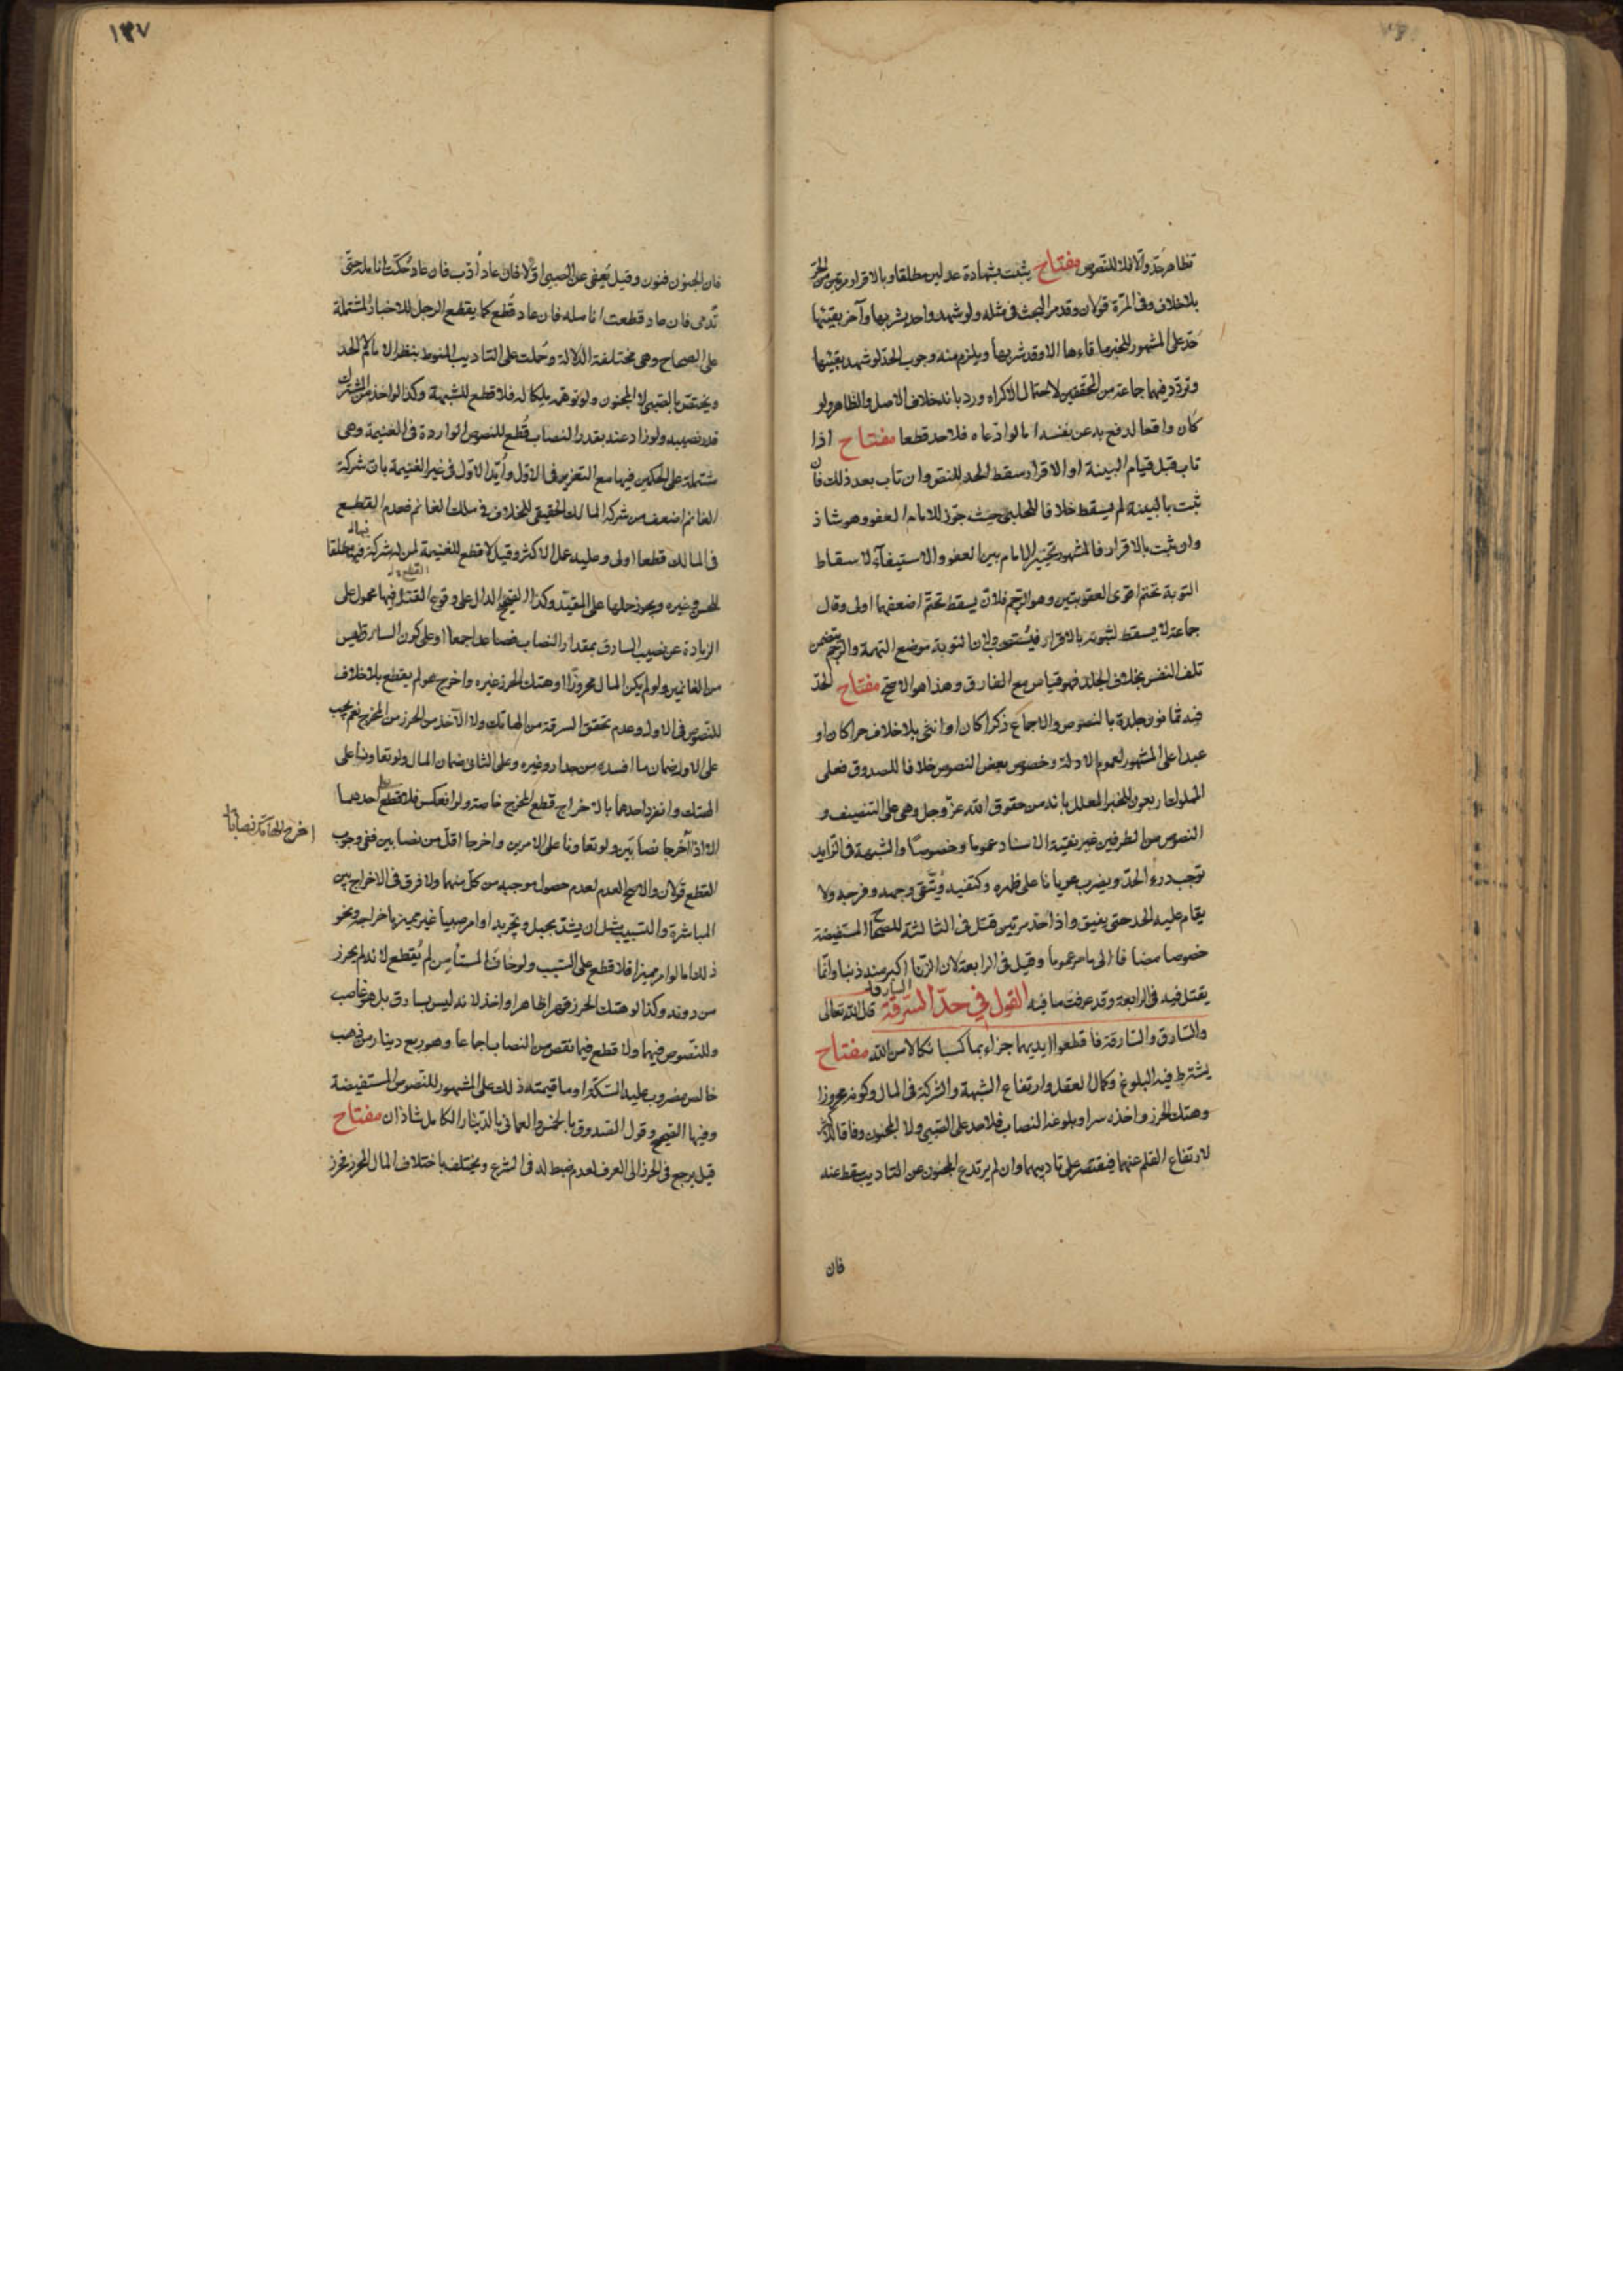 تظاهر حد والا فلا للنصوص مفتاح يثبت بشهادة عدلين مطلقا وبالاقرار مرتين من الحر
بلا خلاف وفى المرة قولان وقد مر البحث فى مثله ولو شهد واحد بشربها وآخر بقيئها
حد على المشهور للخبر ما قاءها الا وقد شربها ويلزم منه وجوب الحد لو شهد بقيئها
وتردد فيهما جماعة من المحققين لاحتمال الاكراه ورد بانه خلاف الاصل والظاهر ولو
كان واقعا لدفع به عن نفسه اما لو ادعاه فلا حد قطعا مفتاح اذا
تاب قبل قيام البينة او الاقرار سقط الحد للنص وان تاب بعد ذلك فان
ثبت بالبينة لم يسقط خلافا للحلبى حيث جوز للامام العفو وهو شاذ
وان ثبت بالاقرار فالمشهور تخيير الامام بين العفو والاستيفاء لاسقاط
التوبة تحتم اقوى العقوبتين وهو الرجم فلان يسقط تحتم اضعفهما اولى وقال
جماعة لا يسقط لثبوته بالاقرار فيستصحب ولان التوبة موضع التهمة والرجم يتضمن
تلف النفس بخلاف الجلد فهو قياس مع الفارق وهذا هو الاصح مفتاح الحد
فيه ثمانون جلدة بالنصوص والاجماع ذكرا كان او انثى بلا خلاف حرا كان او
عبدا على المشهور لعموم الادلة وخصوص بعض النصوص خلافا للصدوق فعلى
المملوك اربعون للخبر المعلل بانه من حقوق الله عز وجل وهى على التنصيف و
النصوص من الطرفين غير نقية الاسناد عموما وخصوصا والشبهة فى الزايد
توجب درء الحد ويضرب عريانا على ظهره وكتفيه ويتقى وجهه وفرجه ولا
يقام عليه الحد حتى يفيق واذا حد مرتين قتل فى الثالثة للصحاح المستفيضة
خصوصا مضافا الى ما مر عموما وقيل فى الرابعة لان الزنا اكبر منه ذنبا وانما
يقتل فيه فى الرابعة وقد عرفت ما فيه القول في حد السرقة قال الله تعالى
والسارق والسارقة فاقطعوا ايديهما جزاء بما كسبا نكالا من الله مفتاح
يشترط فيه البلوغ وكمال العقل وارتفاع الشبهة والشركة فى المال وكونه محروزا
وهتك الحرز واخذه سرا وبلوغه النصاب فلا حد على الصبى ولا المجنون وفاقا للاكثر
لارتفاع القلم عنهما فيقتصر على تاديبهما وان لم يرتدع المجنون عن التاديب سقط عنه
فان
١٣٧
فان الجنون فنون وقيل يعفى عن الصبى اولا فان عاد أدب فان عاد حكت انامله حتى
تدمى فان عاد قطعت انامله فان عاد قطع كما يقطع الرجل للاخبار المشتملة
على الصحاح وهى مختلفة الدلالة وحملت على التاديب المنوط بنظر الامام لا الحد
ويختص بالصبى لا المجنون ولو توهمه ملكا له فلا قطع للشبهة وكذا لو اخذ من المشترك
قدر نصيبه ولو زاد عنه بقدر النصاب قطع للنصوص الواردة فى الغنيمة وهى
مشتملة على الحكمين فيها مع التعزير فى الاول وأيد الاول فى غير الغنيمة بان شركة
الغانم اضعف من شركة المالك الحقيقى للخلاف فى ملك الغانم فعدم القطع
فى المالك قطعا اولى وعليه عمل الاكثر وقيل لا قطع للغنيمة لمن له شركة فيها مطلقا
للحسن وغيره ويجوز حملها على المقيد وكذا الصحيح الدال على وقوع القتل فيها محمول على
الزيادة عن نصيب السارق بمقدار النصاب فصاعدا جمعا او على كون السارق ليس
من الغانمين ولو لم يكن المال محروزا او هتك الحرز غيره واخرج هو لم يقطع بلا خلاف
للنصوص فى الاول وعدم تحقق السرقة من الهاتك ولا الآخذ من الحرز من المخرج نعم يجب
على الاول ضمان ما افسده من جدار وغيره وعلى الثانى ضمان المال ولو تعاونا على
الهتك وانفرد احدهما بالاخراج قطع المخرج خاصة ولو انعكس فلا قطع على احدهما
الا اذا اخرجا نصابين ولو تعاونا على الامرين واخرجا اقل من نصابين ففى وجوب
القطع قولان والاصح العدم لعدم حصول موجبه من كل منهما ولا فرق فى الاخراج بين
المباشرة والتسبيب مثل ان يشد بحبل ويجر به او امر صبيا غير مميز باخراجه ونحو
ذلك اما لو امر مميزا فلا قطع على السبب ولو خان المستأمن لم يقطع لانه لم يحرز
من دونه وكذا لو هتك الحرز قهرا ظاهرا واخذ لانه ليس بسارق بل هو غاصب
وللنصوص فيهما ولا قطع فيما نقص من النصاب اجماعا وهو ربع دينار من ذهب
خالص مضروب عليه السكة او ما قيمته ذلك على المشهور للنصوص المستفيضة
وفيها الصحيح وقول الصدوق بالخمس والعمانى بالدينار الكامل شاذان مفتاح
قيل يرجع فى الحرز الى العرف لعدم ضبط له فى الشرع ويختلف باختلاف المال المحرز فحرز